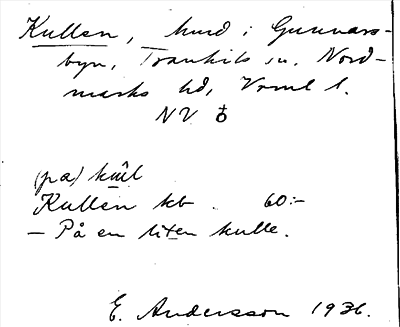 Kullen, hmd i Gunnars-
byn, Trankils sn. Nord-
marks hd, Vrml l.
NV ♁
(pa) kùl
Kullen kb. 60:-
— På en liten kulle.
E. Andersson 1936.